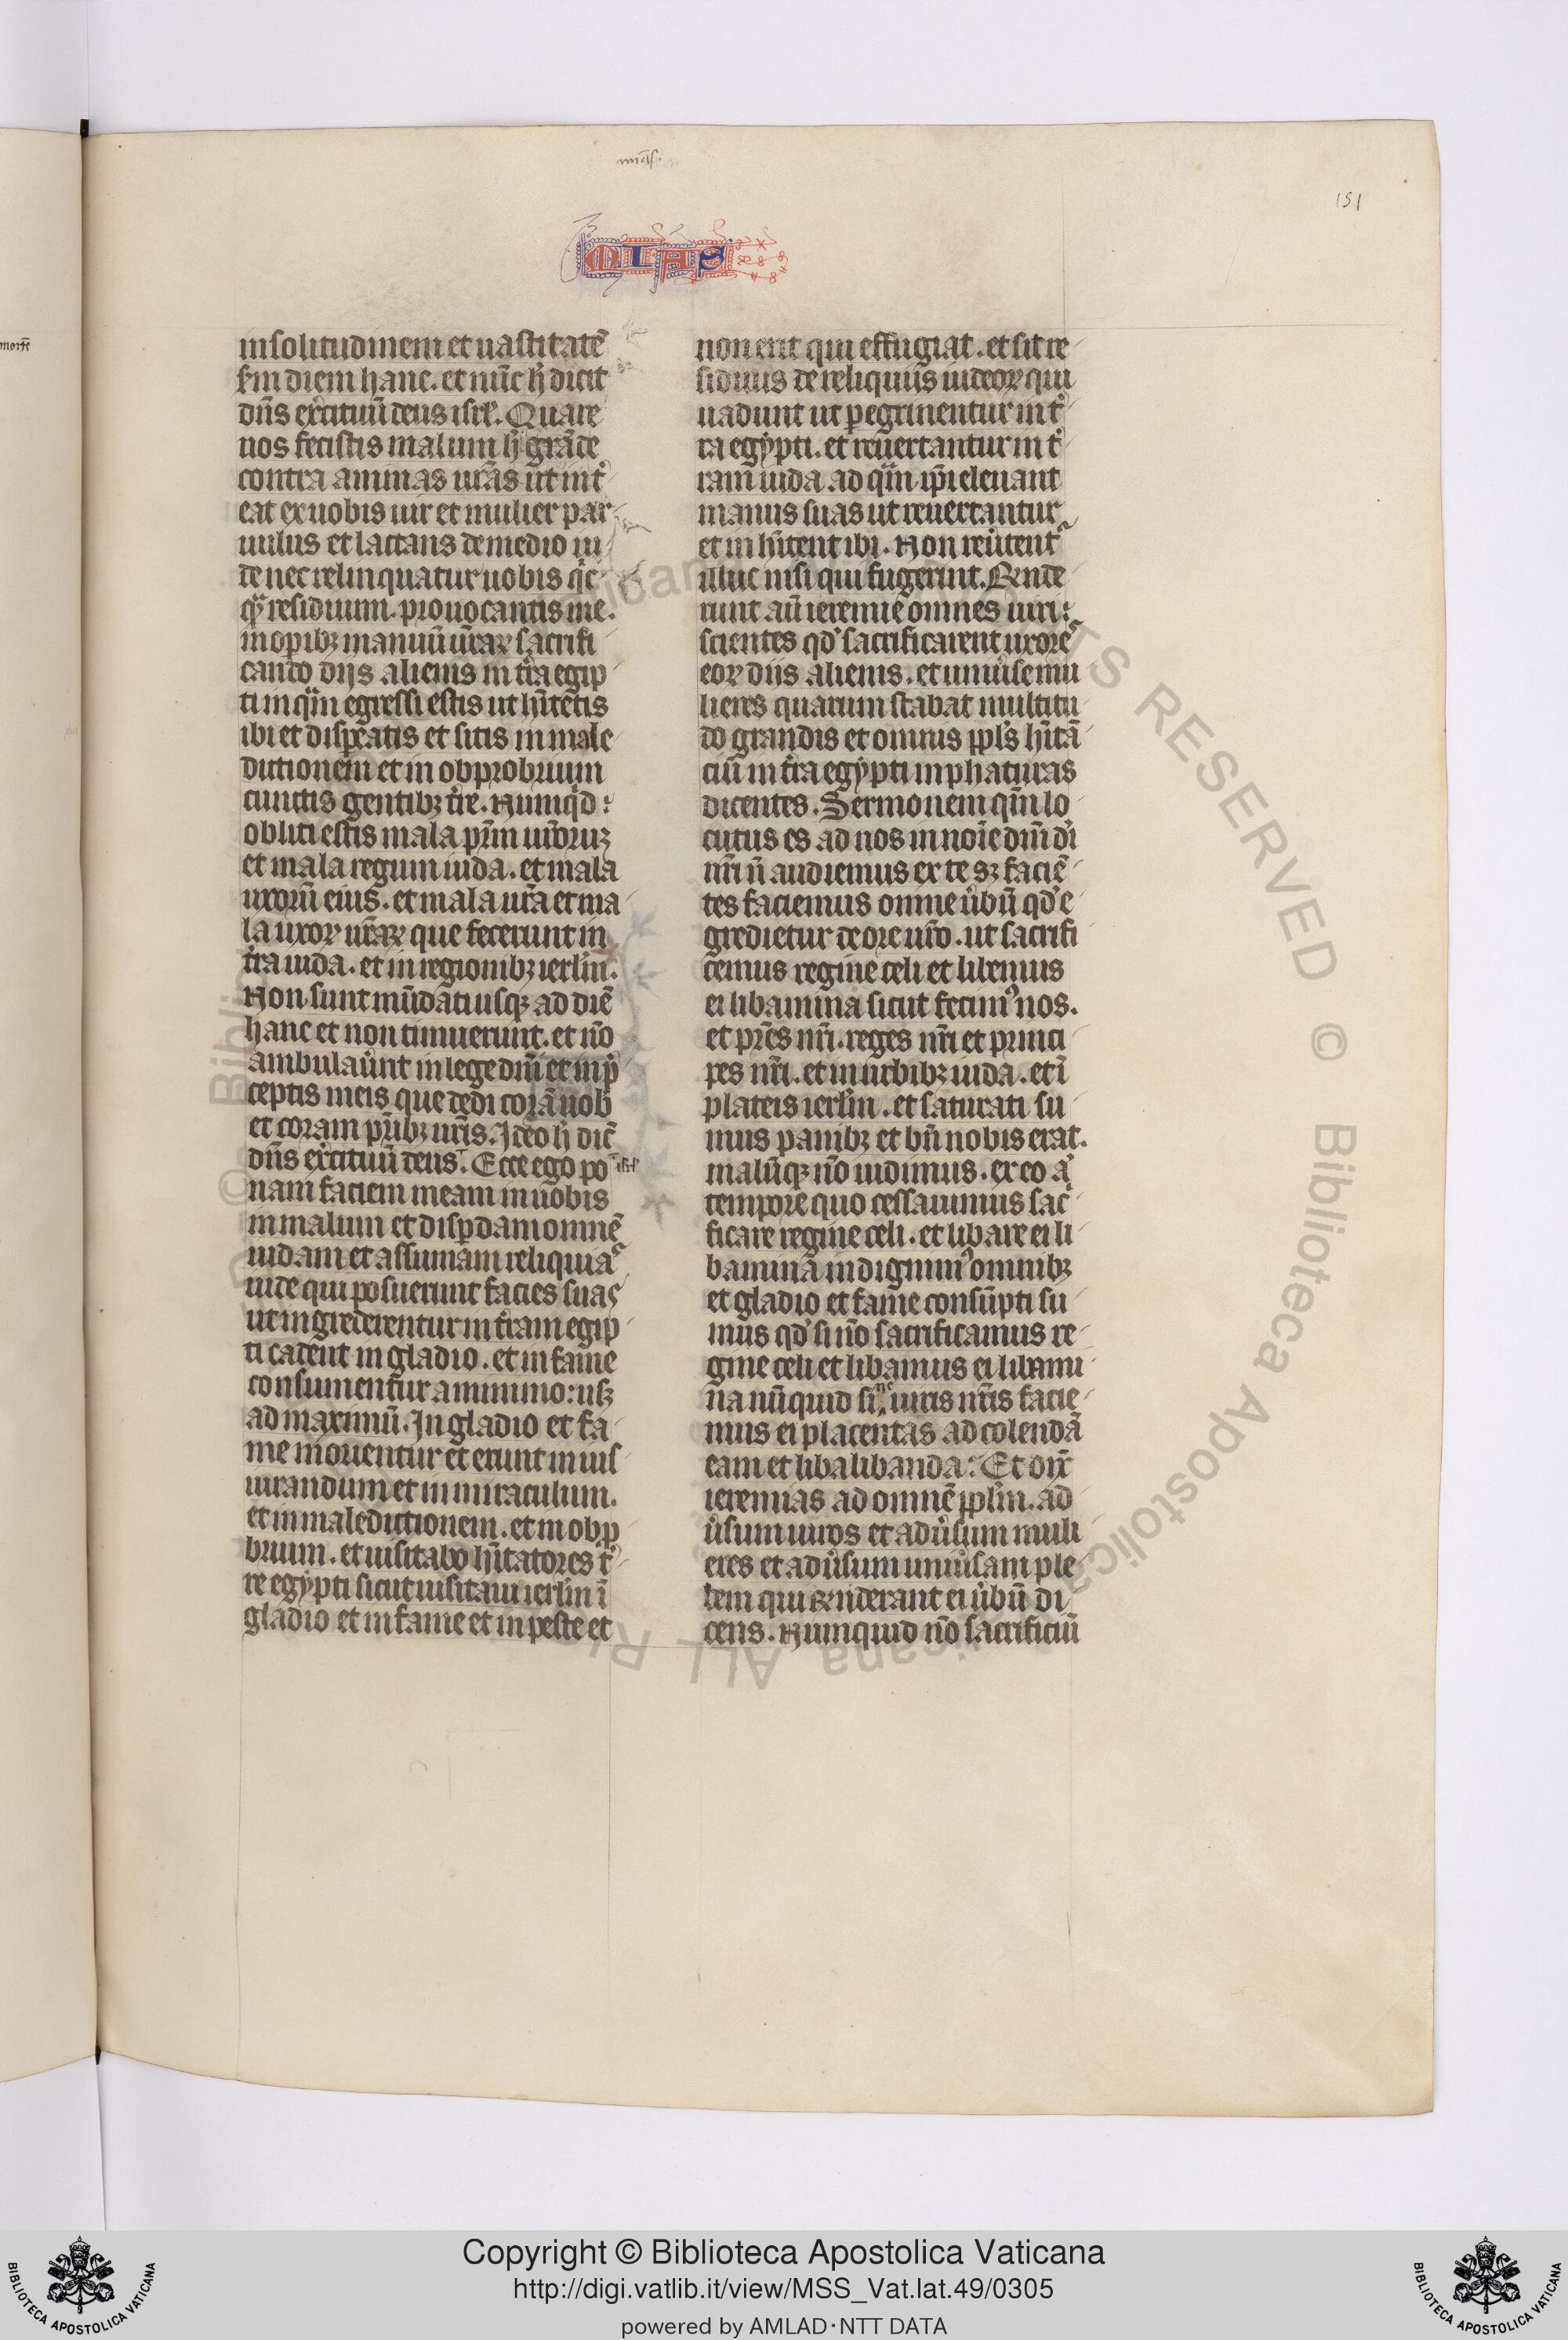 mias
151
MIAS
in solitudinem et uastitatē
scđm diem hanc. et nūc h̄ dicit
dn̄s exꝰcituū deus isrl̄. Quare
uos fecistis malum h̄ grāde
contra animas ur̄as ut int̉
eat ex uobis uir et mulier par
uulus et lactans de medio iu
de nec relinquatur uobis qͥc
qͣ residuum. prouocantis me.
in opibꝫ manuū ur̄aꝝ sacrifi
cando dijs alienis in t̉ra egip
ti in qͣm egressi estis ut hītetis
ibi et dispeatis et sitis in male
dictionem et in obprobrium
cunctis gentibꝫ t̉re. Numqͥd
obliti estis mala pr̄m ur̄oruꝫ
et mala regum iuda. et mala
uxorū eius. et mala ur̄a et ma
la uxoꝝ ur̄aꝝ que fecerunt in
t̉ra iuda. et in regionibꝫ ierlm̄.
Non sunt mūdati usqꝫ ad diē
hanc et non timuerunt. et nō
ambulaūnt in lege dn̄i et in p̄
ceptis meis que dedi corā uob̄
et coram pr̄ibꝫ ur̄is. Ideo h̄ dic̄
dn̄s exꝰcituū deus. Ecce ego po
isrl̄
nam faciem meam in uobis
in malum et disꝑdam omnē
iudam et assumam reliquias
iude qui posuerunt facies suas
ut ingrederentur in t̉ram egip
ti cadent in gladio. et in fame
consumentur a minimo: usqꝫ
ad maximū. In gladio et fa
me morientur et erunt in ius
iurandum et in miraculum.
et in maledictionem. et in obꝓ
brium. et uisitabo hītatores t̉
re egypti sicut uisitaui ierlm̄ ī
gladio et in fame et in peste et
non erit qui effugiat. et sit re
siduus de reliquiis iudeoꝝ qui
uadunt ut ꝑegrinentur in t̉
ra egypti. et reuertantur in t̉
ram iuda ad qͣm ip̄i eleuant
manus suas ut reuertantur
et inhītent ibi. Non reūtent̉
illuc nisi qui fugerint. Rn̄de
runt aū ieremie omnes uiri:
scientes qđ sacrificarent uxores
eoꝝ diis alienis. et uniūse mu
lieres quarum stabat multitu
do grandis et omnis ppl̄s hītā
ciū in t̉ra egypti in phaturas
dicentes. Sermonem qͣm lo
cutus es ad nos in noīe dn̄i dī
nr̄i n̄ audiemus ex te sꝫ faciē
tes faciemus omne ūbū qđ e
gredietur de ore nr̄o. ut sacrifi
cemus regine celi et libemus
ei libamina sicut fecimꝰ nos.
et pr̄es nr̄i. reges nr̄i et princi
pes nr̄i. et in urbibꝫ iuda. et ī
plateis ierlm̄. et saturati su
mus panibꝫ et bn̄ nobis erat.
malūqꝫ nō uidimus. ex eo aͭ
tempore quo cessauimus sacͥ
ficare regine celi. et libare ei li
bamina indigimꝰ omnibꝫ
et gladio et fame consūpti su
mus qđ si nō sacrificamus re
gine celi et libamus ei libami
na nūquid sine uiris nr̄is facie
mus ei placentas ad colendā
eam et liba libanda: Et dix̄
ieremias ad omnē pplm̄. ad
ūsum uiros et adūsum muli
eres et adūsum uniūsam ple
bem qui rn̄derant ei ūbū di
cens. Numquid nō sacrificiū
Copyright © Biblioteca Apostolica Vaticana
http://digi.vatlib.it/view/MSS_Vat.lat.49/0305
powered by AMLAD·NTT DATA